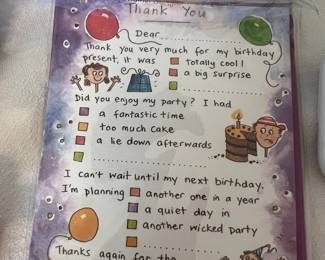 Thank You
Dear..................
Thank you very much for my birthday
present, it was totally cool!
a big surprise
..................
Did you enjoy my party? I had
a fantastic time
too much cake
a lie down afterwards
..................
I can't wait until my next birthday,
I'm planning another one in a year
a quiet day in
another wicked party
..................
Thanks again for the